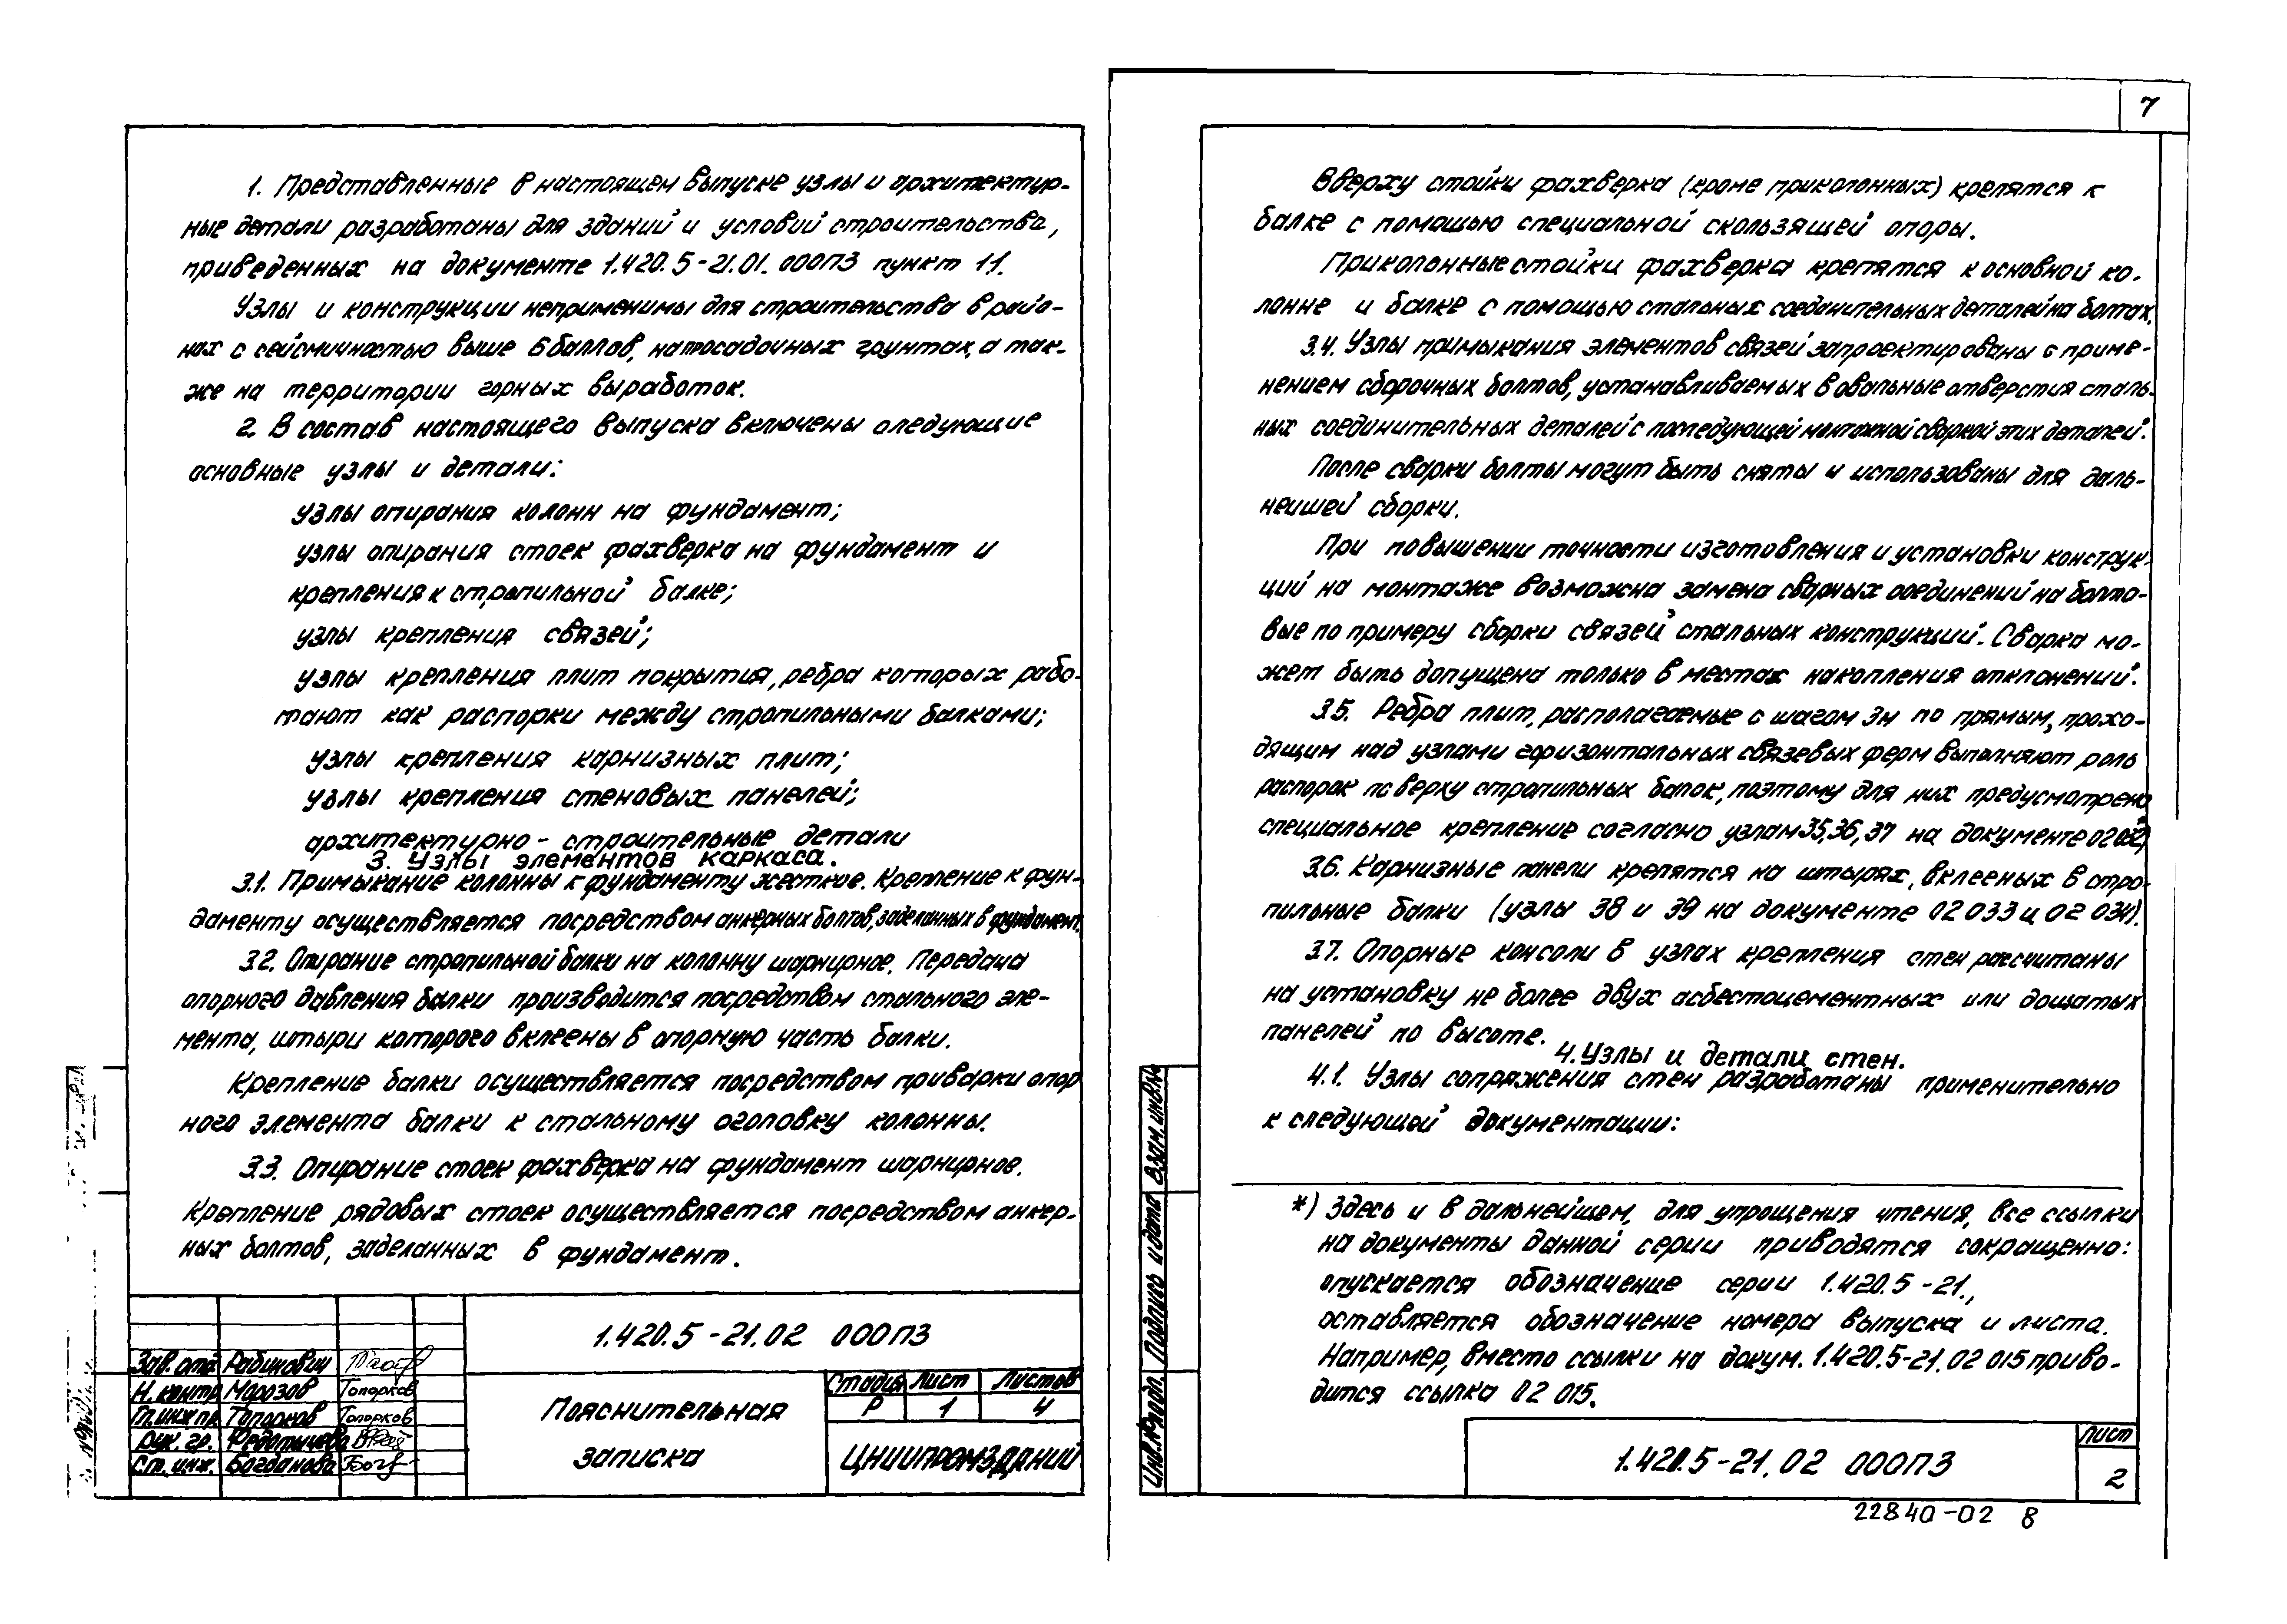 1. Представленные в настоящем выпуске узлы и архитектур-
ные детали разработаны для зданий и условий строительства,
приведенных на документе 1.420.5-21.01. 000ПЗ пункт 1.1.
Узлы и конструкции неприменимы для строительства в райо-
нах с сейсмичностью выше 6 баллов, на просадочных грунтах, а так-
же на территории горных выработок.
2. В состав настоящего выпуска включены следующие
основные узлы и детали:
узлы опирания колонн на фундамент;
узлы опирания стоек фахверка на фундамент и
крепления к стропильной балке;
узлы крепления связей;
узлы крепления плит покрытия, ребра которых рабо-
тают как распорки между стропильными балками;
узлы крепления карнизных плит;
узлы крепления стеновых панелей;
архитектурно-строительные детали
3. Узлы элементов каркаса.
3.1. Примыкание колонны к фундаменту жесткое. Крепление к фун-
даменту осуществляется посредством анкерных болтов, заделанных в фундамент.
3.2. Опирание стропильной балки на колонну шарнирное. Передача
опорного давления балки производится посредством стального эле-
мента, штыри которого вклеены в опорную часть балки.
Крепление балки осуществляется посредством приварки опор
ного элемента балки к стальному оголовку колонны.
3.3. Опирание стоек фахверка на фундамент шарнирное.
Крепление рядовых стоек осуществляется посредством анкер-
ных болтов, заделанных в фундамент.
1.420.5-21.02 000ПЗ
Зав. отд. Рабинович
Н. контр. Морозов Топорков
Гл. инж. пр. Топорков Топорков
Рук. гр. Федотычева
Ст. инж. Богданова
Пояснительная
записка
Стадия Лист Листов
Р 1 4
ЦНИИПРОМЗДАНИЙ
7
Вверху стойки фахверка (кроме приколонных) крепятся к
балке с помощью специальной скользящей опоры.
Приколонные стойки фахверка крепятся к основной ко-
лонне и балке с помощью стальных соединительных деталей на болтах.
3.4. Узлы примыкания элементов связей запроектированы с приме-
нением сборочных болтов, устанавливаемых в овальные отверстия сталь-
ных соединительных деталей с последующей монтажной сваркой этих деталей.
После сварки болты могут быть сняты и использованы для даль-
нейшей сборки.
При повышении точности изготовления и установки конструк-
ций на монтаже возможна замена сварных соединений на болто-
вые по примеру сборки связей стальных конструкций. Сварка мо-
жет быть допущена только в местах накопления отклонений.
3.5. Ребра плит, располагаемые с шагом 3м по прямым, прохо-
дящим над узлами горизонтальных связевых ферм выполняют роль
распорок по верху стропильных балок, поэтому для них предусмотрено
специальное крепление согласно узлам 35, 36, 37 на документе 02 032*)
3.6. Карнизные панели крепятся на штырях, вклееных в стро-
пильные балки (узлы 38 и 39 на документе 02 033 и 02 034).
3.7. Опорные консоли в узлах крепления стен рассчитаны
на установку не более двух асбестоцементных или дощатых
панелей по высоте.
4. Узлы и детали стен.
4.1. Узлы сопряжения стен разработаны применительно
к следующей документации:
*) Здесь и в дальнейшем, для упрощения чтения, все ссылки
на документы данной серии приводятся сокращенно:
опускается обозначение серии 1.420.5-21.,
оставляется обозначение номера выпуска и листа.
Например, вместо ссылки на докум. 1.420.5-21.02 015 приво-
дится ссылка 02 015.
Инв. № подл. Подпись и дата Взам. инв. №
1.420.5-21.02 000ПЗ
Лист
2
22840-02 8